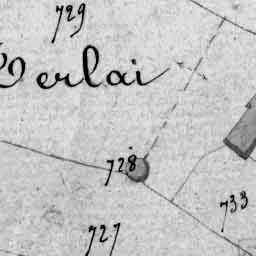 729
Verlai
728
733
727